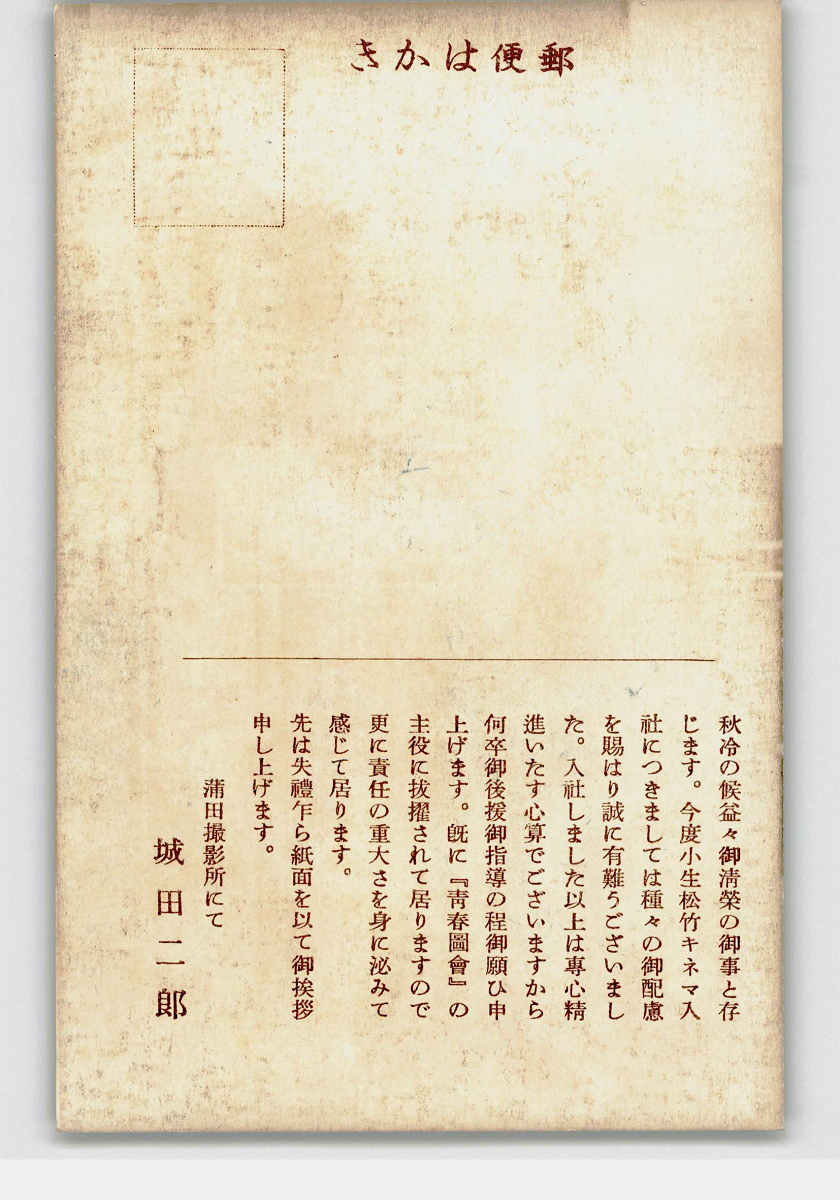 郵便はかき
秋冷の候益々御清榮の御事と存
じます。今度小生松竹キネマ入
社につきましては種々の御配慮
を賜はり誠に有難うございまし
た。入社しました以上は專心精
進いたす心算でございますから
何卒御後援御指導の程御願ひ申
上げます。既に『靑春圖會』の
主役に抜擢されて居りますので
更に責任の重大さを身に泌みて
感じて居ります。
先は失禮乍ら紙面を以て御挨拶
申し上げます。
蒲田撮影所にて
城田二郎